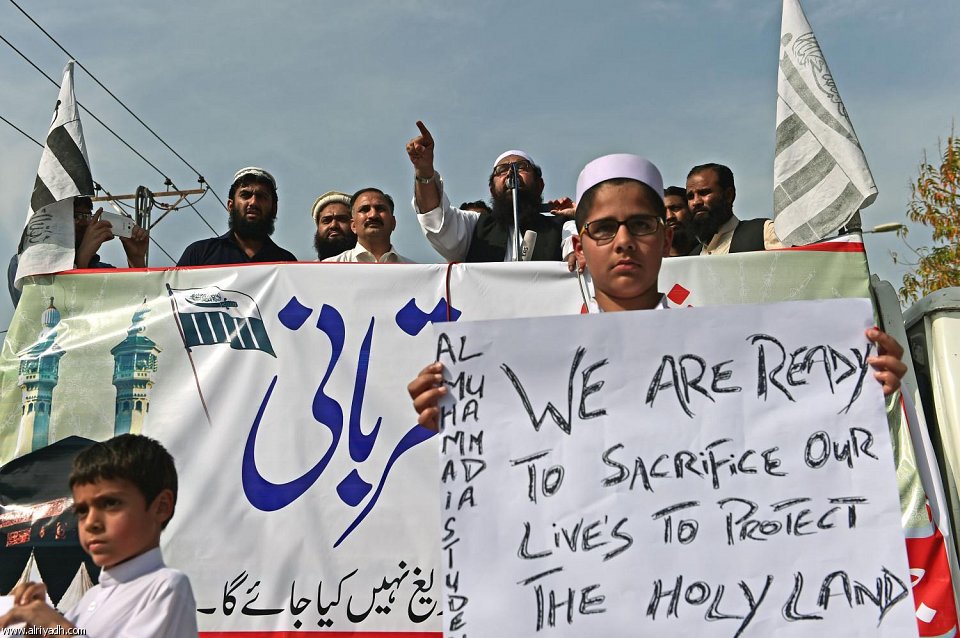 قربانی
نہیں کیا جائے گا۔
ALMUHAMMADIA STUDE
WE ARE READY
TO SACRIFICE OUR
LIVE'S TO PROTECT
THE HOLY LAND
www.alriyadh.com